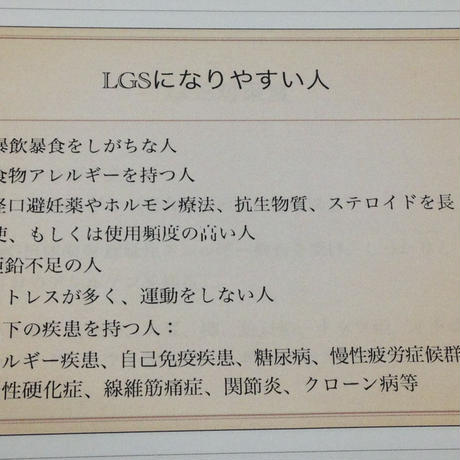 LGSになりやすい人
暴飲暴食をしがちな人
食物アレルギーを持つ人
経口避妊薬やホルモン療法、抗生物質、ステロイドを長
使、もしくは使用頻度の高い人
亜鉛不足の人
トレスが多く、運動をしない人
下の疾患を持つ人：
ルギー疾患、自己免疫疾患、糖尿病、慢性疲労症候群
性硬化症、線維筋痛症、関節炎、クローン病等